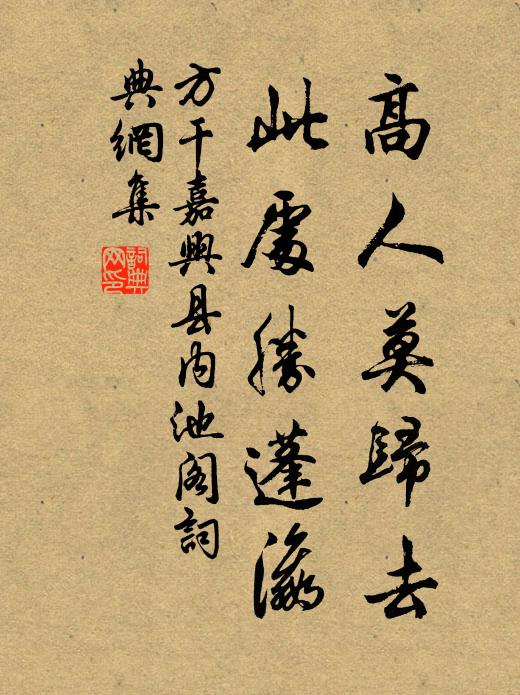 高人莫歸去
此處勝蓬瀛
方干嘉興县内池阁詞
典網集
詞典网印